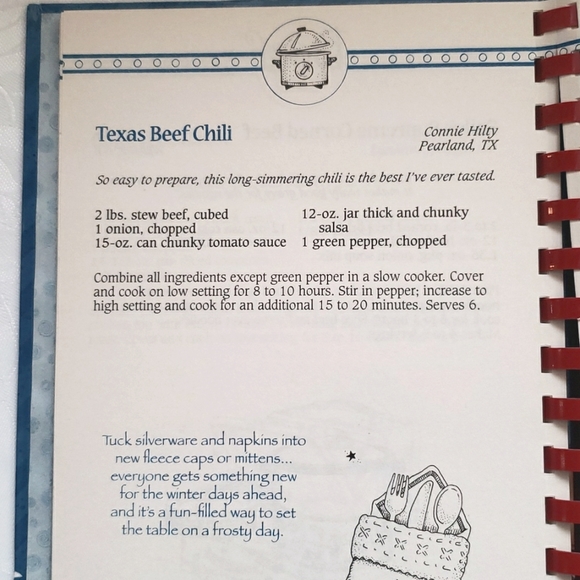 Texas Beef Chili
Connie Hilty
Pearland, TX
So easy to prepare, this long-simmering chili is the best I've ever tasted.
2 lbs. stew beef, cubed
1 onion, chopped
15-oz. can chunky tomato sauce
12-oz. jar thick and chunky
salsa
1 green pepper, chopped
Combine all ingredients except green pepper in a slow cooker. Cover
and cook on low setting for 8 to 10 hours. Stir in pepper; increase to
high setting and cook for an additional 15 to 20 minutes. Serves 6.
Tuck silverware and napkins into
new fleece caps or mittens...
everyone gets something new
for the winter days ahead,
and it's a fun-filled way to set
the table on a frosty day.